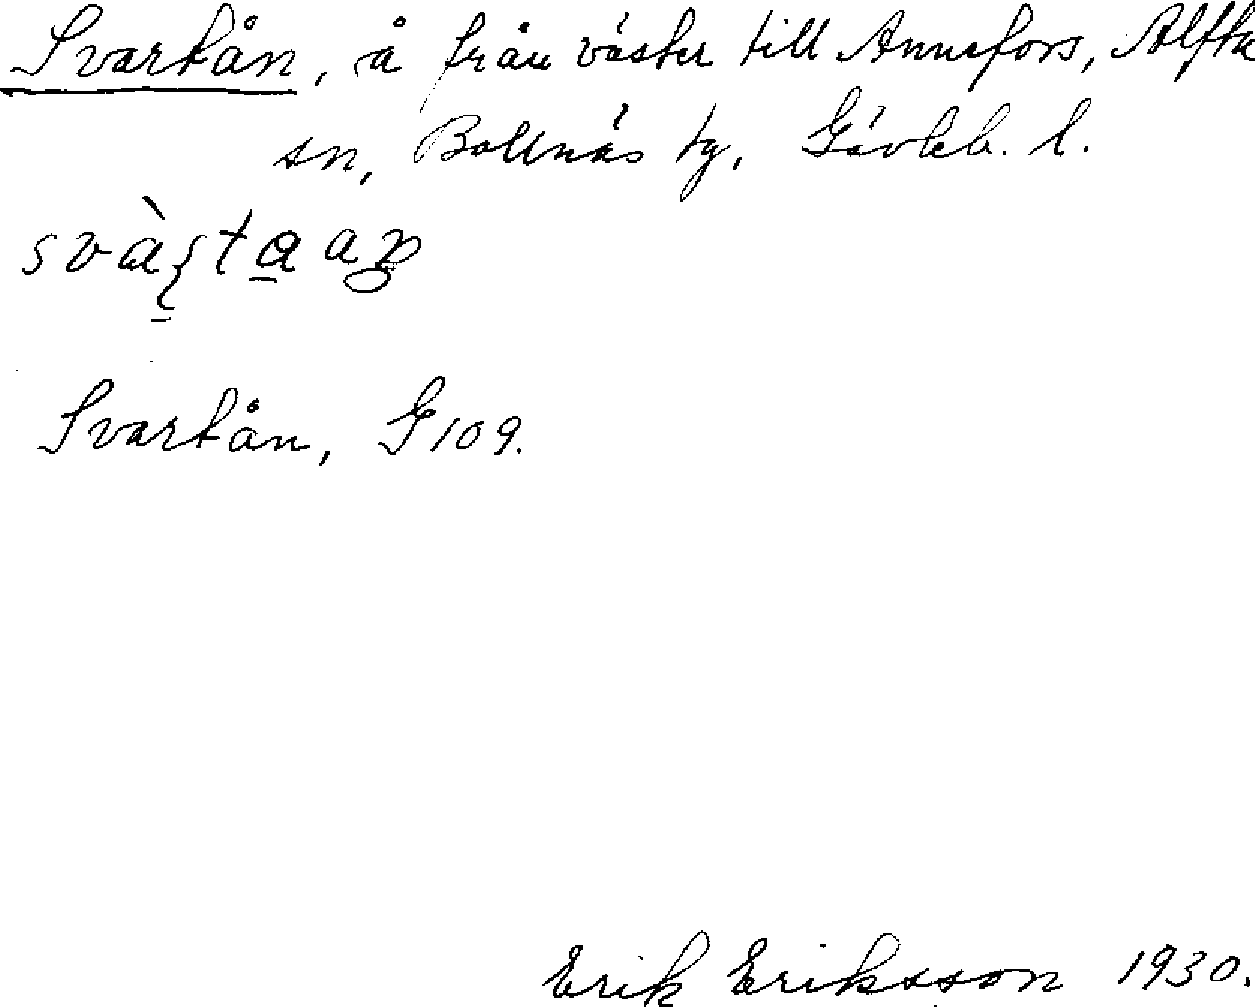 Svartån, å från väster till Annefors, Alfta
sn, Bollnäs tg, Gävleb. l.
Svartån, G 109.
Erik Eriksson 1930.